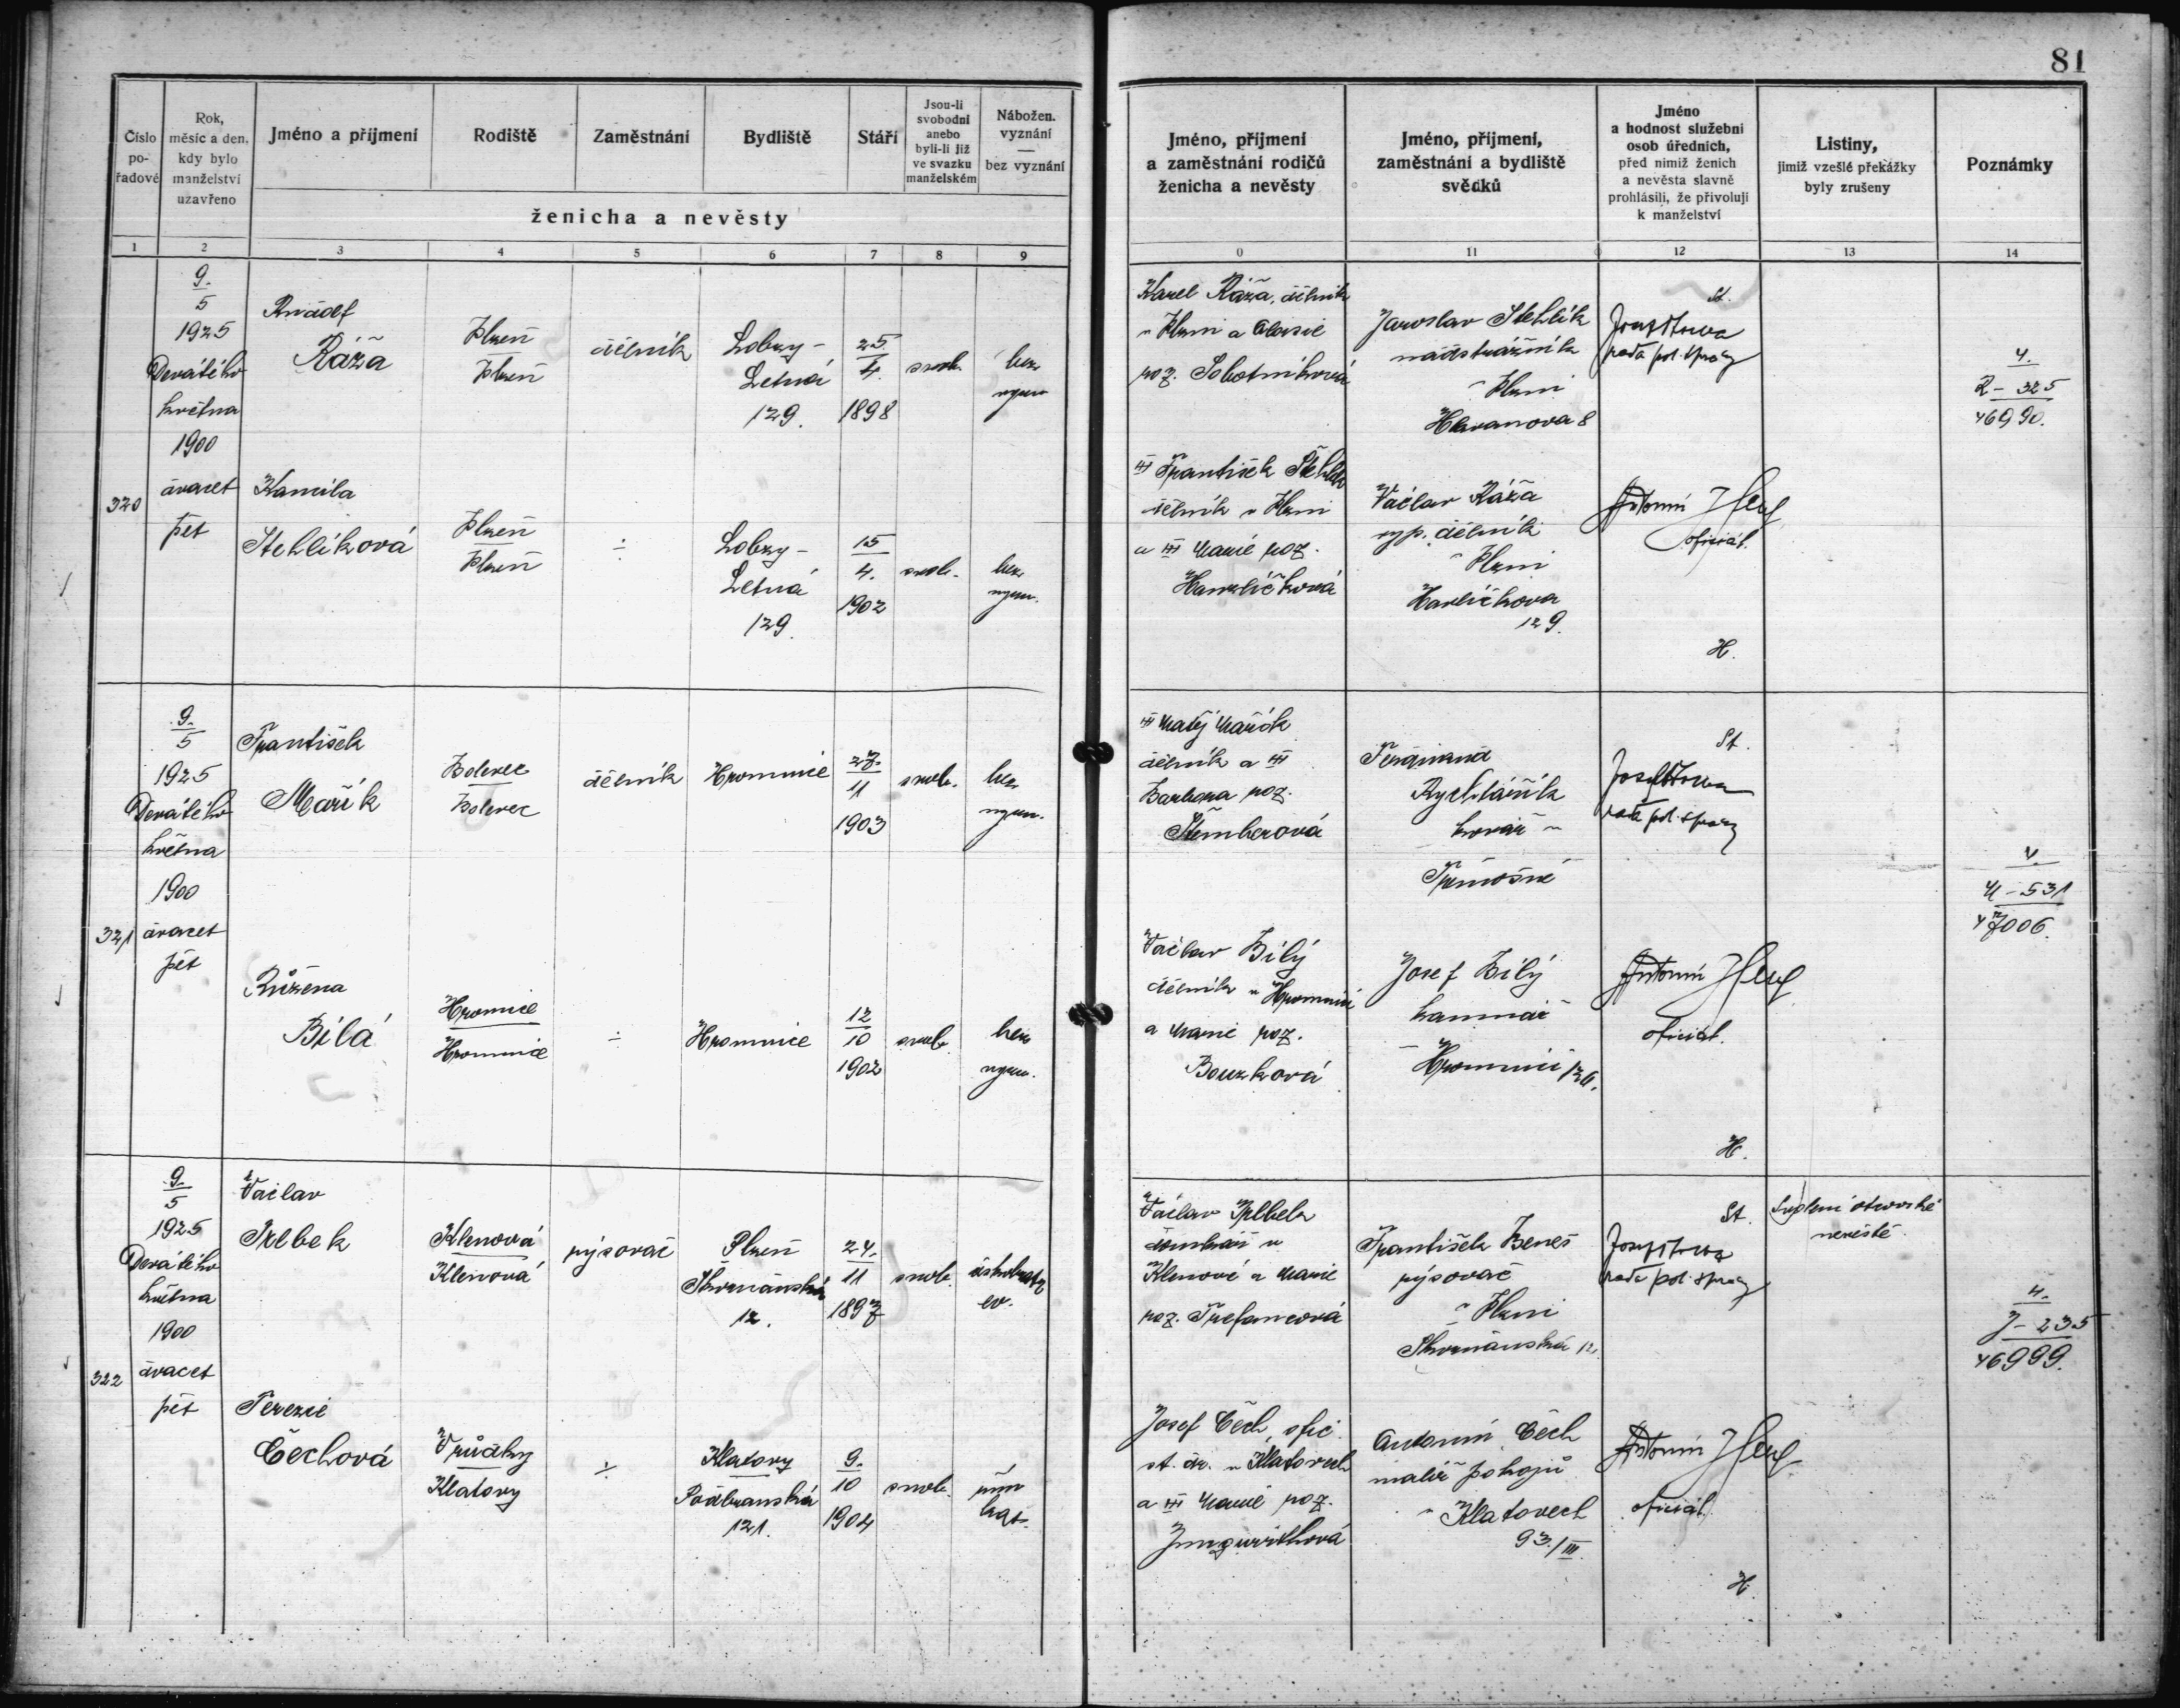 81
Číslo
po-
řadové
Rok,
měsíc a den,
kdy bylo
manželství
uzavřeno
Jméno a příjmení
Rodiště
Zaměstnání
Bydliště
Stáří
Jsou-li
svobodni
anebo
byli-li již
ve svazku
manželském
Nábožen.
vyznání
—
bez vyznání
ženicha a nevěsty
Jméno, příjmení
a zaměstnání rodičů
ženicha a nevěsty
Jméno, příjmení,
zaměstnání a bydliště
svědků
Jméno
a hodnost služební
osob úředních,
před nimiž ženich
a nevěsta slavně
prohlásili, že přivolují
k manželství
Listiny,
jimiž vzešlé překážky
byly zrušeny
Poznámky
1 2 3 4 5 6 7 8 9 0 11 12 13 14
320
9.
5
1925
Devátého
května
1900
dvacet
pět
Ráža
Plzeň
Plzeň
dělník
Lobzy-
Letná
129.
25.
4.
1898
svob.
bez
vyzn.
Karel Ráža, dělník
v Plzni a Aloisie
roz. Sobotníková
Jaroslav Stehlík
nádstrážník
v Plzni
Hlavanova 8
St.
rada pol. správy
4.
R - 325
46990.
Kamila
Stehlíková
Plzeň
Plzeň
÷
Lobzy-
Letná
129.
15
4.
1902
svob.
bez
vyzn.
František Stehlík
dělník v Plzni
a Marie roz.
Hanzlíčková
Václav Ráža
dělník
v Plzni
Havlíčkova
129.
Antonín
oficiál.
H.
321
9.
5
1925
Devátého
května
1900
dvacet
pět
František
Mařík
Bolevec
Bolevec
dělník
Hromnice
27.
11
1903
svob.
bez
vyzn.
Matěj Mařík
dělník a
Barbora roz.
Štemberová
Ferdinand
Rychtářík
kovář v
Třemošné
St.
rada pol. správy
4.
M - 531
47006.
Růžena
Bílá
Hromnice
Hromnice
÷
Hromnice
12
10
1902
svob.
bez
vyzn.
Václav Bílý
dělník v Hromnici
a Marie roz.
Bouzková
Josef Bílý
kamnář
v Hromnici 126.
Antonín
oficiál.
H.
322
9.
5
1925
Devátého
května
1900
dvacet
pět
Václav
Trlbek
Klenová
Klenová
rýsovač
Plzeň
Skvrňanská
12.
24.
11
1897
svob.
českobratr.
ev.
Václav Trlbek
domkář v
Klenové a Marie
roz. Trefancová
František Beneš
rýsovač
v Plzni
Skvrňanská 12.
St.
rada pol. správy
Svolení otcovské
nevěstě.
4.
J - 235
46999.
Terezie
Čechová
Vrúdky
Klatovy
÷
Klatovy
Podbranská
121.
9.
10
1904
svob.
řím
kat.
Josef Čech, ofic.
st. dr. v Klatovech
a Marie roz.
Jungwirthová
Antonín Čech
malíř pokojů
v Klatovech
93./III.
Antonín
oficiál.
H.